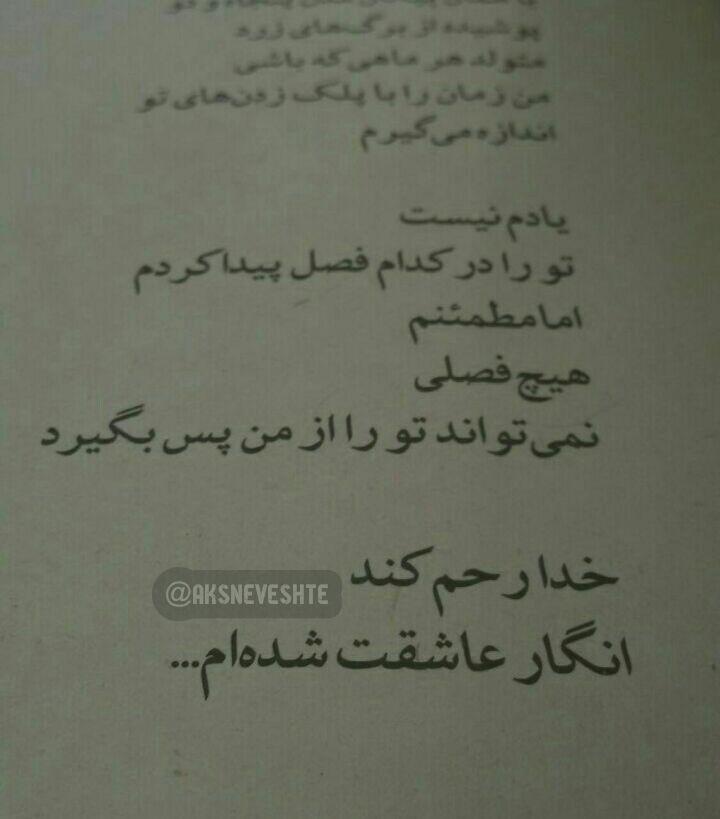 پوشیده از برگ‌های زرد
متولد هر ماهی که باشی
من زمان را با پلک زدن‌های تو
اندازه می‌گیرم
یادم نیست
تو را در کدام فصل پیدا کردم
اما مطمئنم
هیچ فصلی
نمی‌تواند تو را از من پس بگیرد
خدا رحم کند
@AKSNEVESHTE
انگار عاشقت شده‌ام...